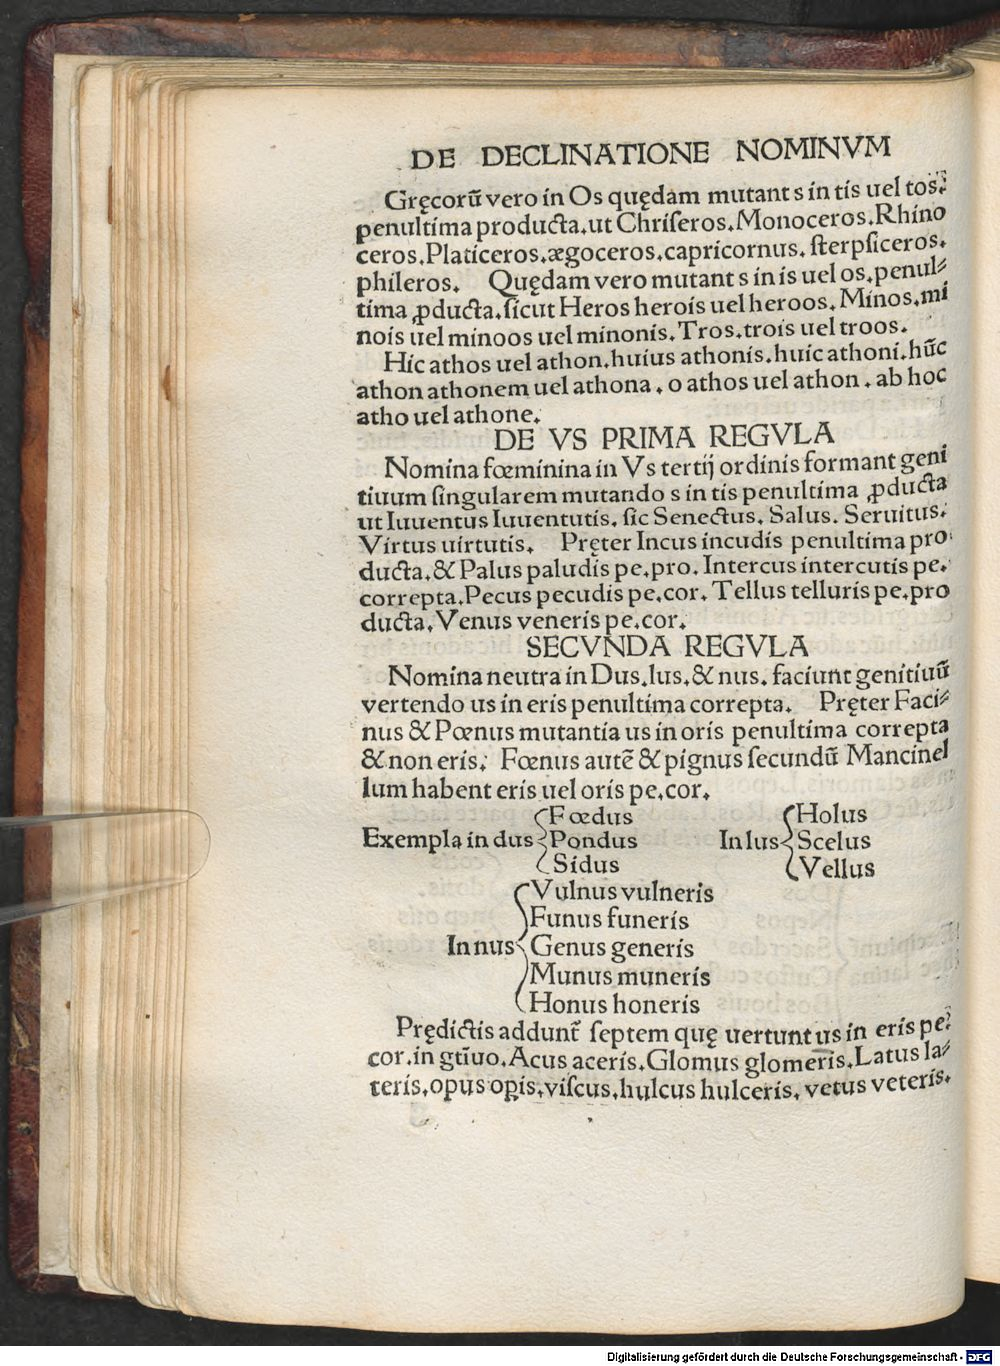 DE DECLINATIONE NOMINVM
Gręcorū vero in Os quędam mutant s in tis uel tos:
penultima producta.ut Chriſeros.Monoceros.Rhino
ceros.Platiceros.ægoceros.capricornus. ſterpſiceros.
phileros. Quędam vero mutant s in is uel os.penul⸗
tima ꝓducta.ſicut Heros herois uel heroos. Minos.mi
nois uel minoos uel minonis.Tros.trois uel troos.
Hic athos uel athon.huius athonis.huic athoni.hūc
athon athonem uel athona . o athos uel athon . ab hoc
atho uel athone.
DE VS PRIMA REGVLA
Nomina fœminina in Vs tertij ordinis formant geni
tiuum ſingularem mutando s in tis penultima ꝓducta
ut Iuuentus Iuuentutis. ſic Senectus. Salus. Seruitus.
Virtus uirtutis. Pręter Incus incudis penultima pro
ducta.& Palus paludis pe.pro. Intercus intercutis pe.
correpta.Pecus pecudis pe.cor. Tellus telluris pe.pro
ducta.Venus veneris pe.cor.
SECVNDA REGVLA
Nomina neutra in Dus.lus.& nus. faciunt genitiuū
vertendo us in eris penultima correpta. Pręter Faci⸗
nus & Pœnus mutantia us in oris penultima correpta
& non eris. Fœnus autē & pignus ſecundū Mancinel
lum habent eris uel oris pe.cor.
Exempla in dus Fœdus
Pondus
Sidus
In lus Holus
Scelus
Vellus
In nus Vulnus vulneris
Funus funeris
Genus generis
Munus muneris
Honus honeris
Prędictis addunt̄ ſeptem quę uertunt us in eris pe⸗
cor.in gtī̄uo.Acus aceris.Glomus glomeris.Latus la⸗
teris.opus opis.viſcus.hulcus hulceris. vetus veteris.
Digitalisierung gefördert durch die Deutsche Forschungsgemeinschaft - DFG